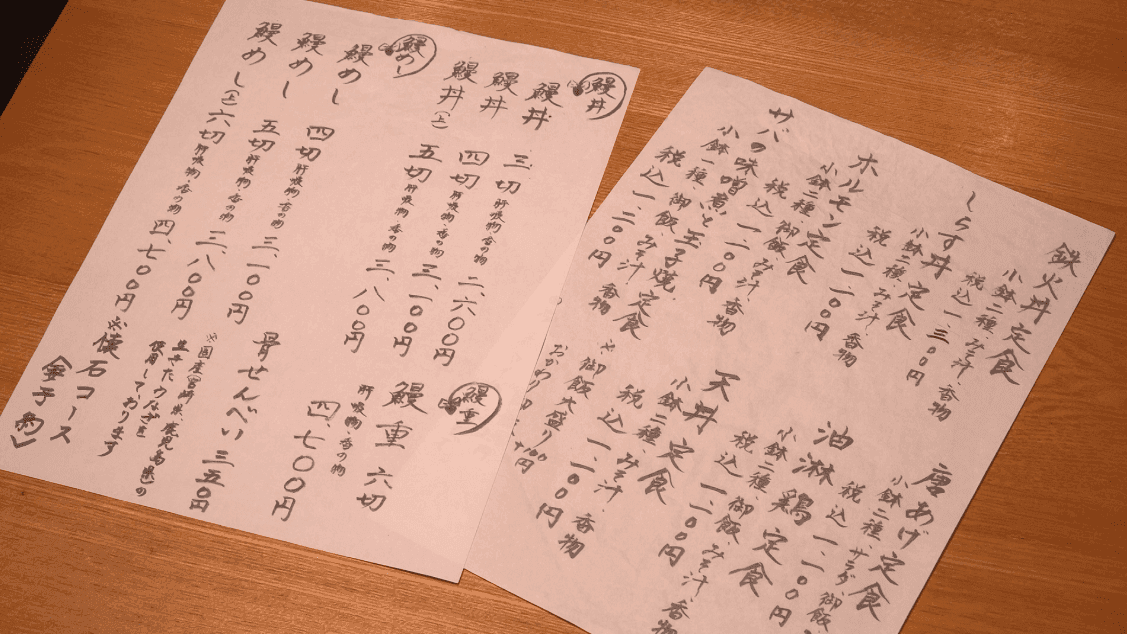 鰻丼
鰻丼 三切 肝吸物・香の物 二、六〇〇円
鰻丼 四切 肝吸物・香の物 三、一〇〇円
鰻丼(上) 五切 肝吸物・香の物 三、八〇〇円
鰻めし
鰻めし 四切 肝吸物・香の物 三、一〇〇円
鰻めし 五切 肝吸物・香の物 三、八〇〇円
鰻めし(上) 六切 肝吸物・香の物 四、七〇〇円
鰻重
鰻重 六切
肝吸物・香の物
四、七〇〇円
骨せんべい 三五〇円
※国産(宮崎県、鹿児島県)の
生きたウナギを
使用しております
※懐石コース
鉄火丼定食
小鉢二種、みそ汁、香物
税込一、三〇〇円
しらす丼定食
小鉢二種、みそ汁、香物
税込一、一〇〇円
ホルモン定食
小鉢二種、御飯、みそ汁、香物
税込一、一〇〇円
サバの味噌煮と玉子焼定食
小鉢一種、御飯、みそ汁、香物
税込一、二〇〇円
唐あげ定食
小鉢二種、サラダ、御飯、
税込一、一〇〇円
油淋鶏定食
小鉢二種、御飯、みそ汁、香物
税込一、一〇〇円
天丼定食
小鉢二種、みそ汁、香物
税込一、一〇〇円
※御飯大盛り
おかわり